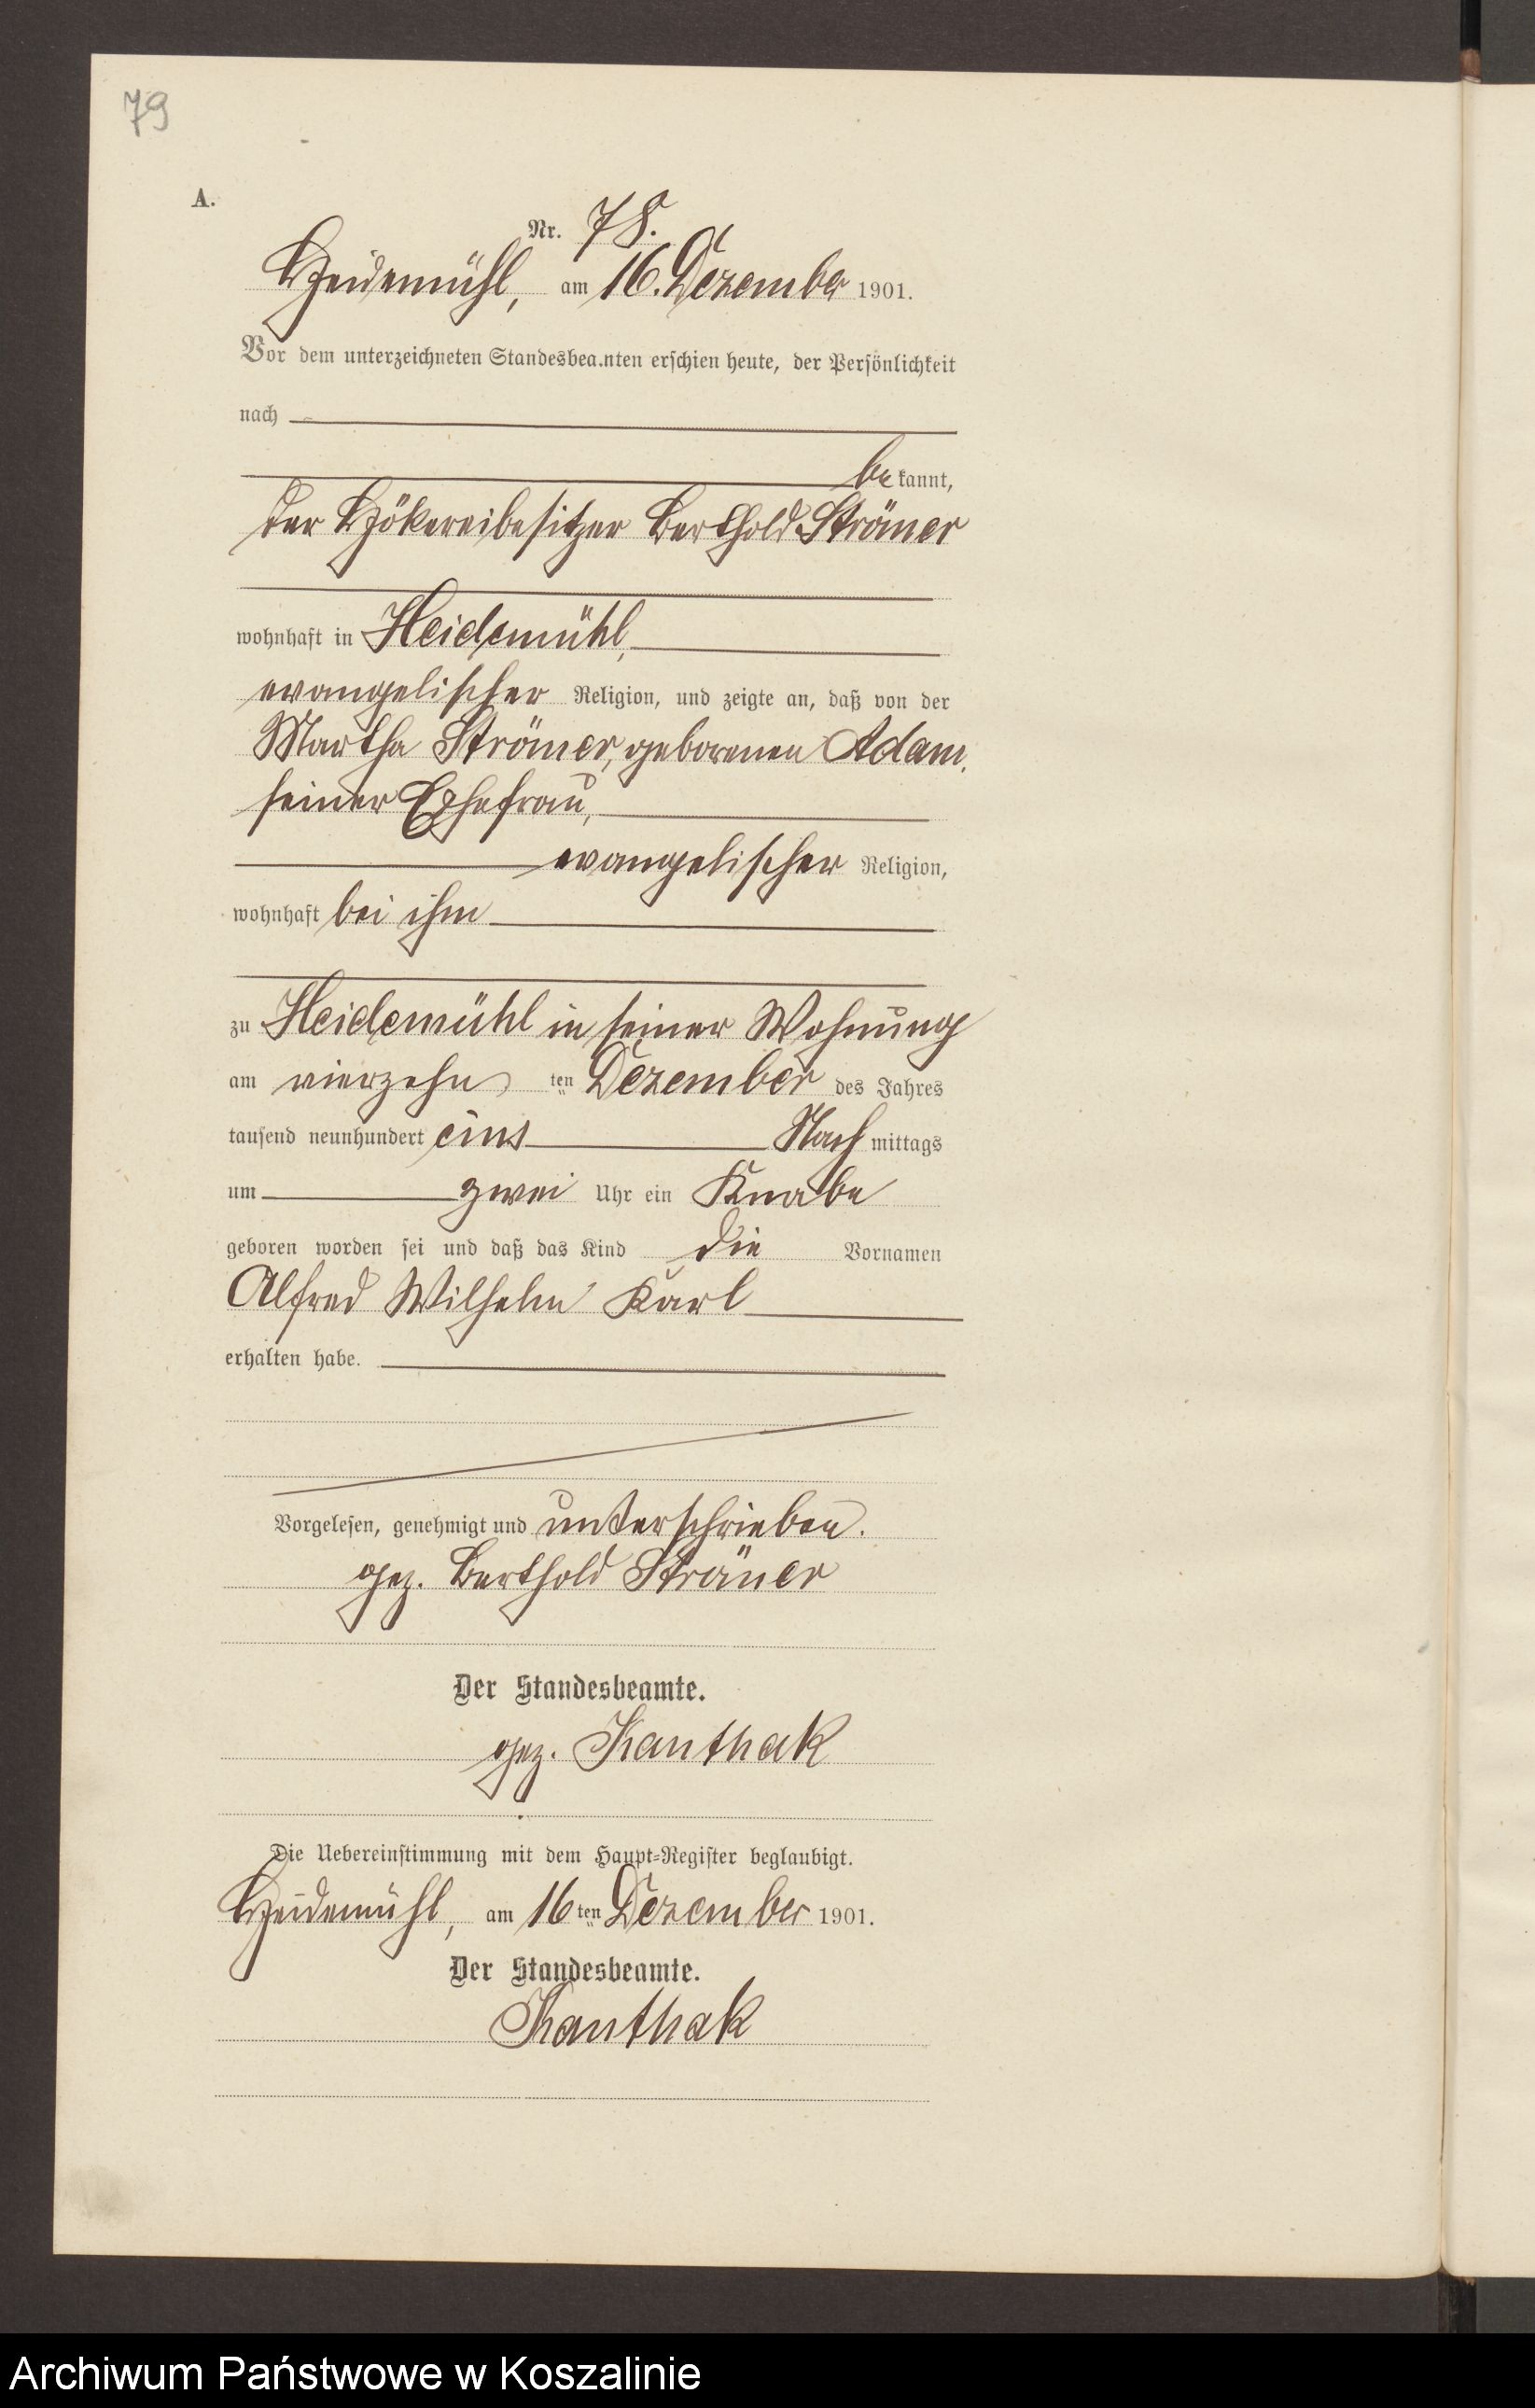 79
A.
Nr. 78.
Heidemühl, am 16. Dezember 1901.
Vor dem unterzeichneten Standesbea.nten erschien heute, der Persönlichkeit
nach
bekannt,
der Hökereibesitzer Berthold Strömer
wohnhaft in Heidemühl,
evangelischer Religion, und zeigte an, daß von der
Martha Strömer, geborenen Adam,
seiner Ehefrau,
evangelischer Religion,
wohnhaft bei ihm
zu Heidemühl in seiner Wohnung
am vierzehn ten Dezember des Jahres
tausend neunhundert eins Nachmittags
um zwei Uhr ein Knabe
geboren worden sei und daß das Kind die Vornamen
Alfred Wilhelm Karl
erhalten habe.
Vorgelesen, genehmigt und unterschrieben.
gez. Berthold Strämer
Der Standesbeamte.
gez. Kanthak
Die Uebereinstimmung mit dem Haupt-Register beglaubigt.
Heidemühl, am 16ten Dezember 1901.
Der Standesbeamte.
Kanthak
Archiwum Państwowe w Koszalinie